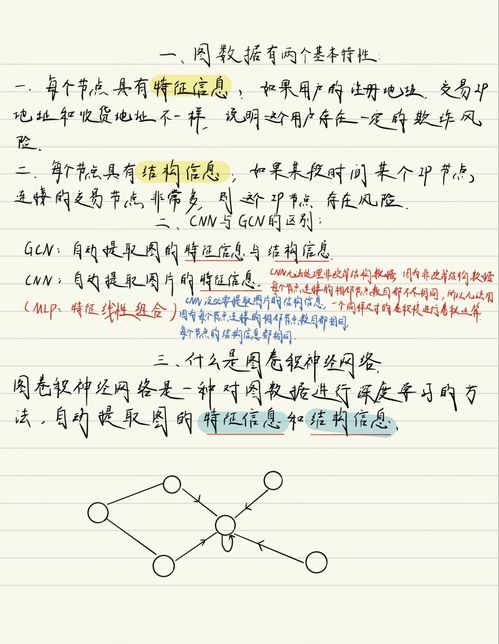 一、图数据有两个基本特性:
一. 每个节点具有特征信息, 如果用户的注册地址、交易IP
地址和收货地址不一样, 说明这个用户存在一定的欺诈风
险.
二. 每个节点具有结构信息, 如果某段时间某个IP节点,
连接的交易节点非常多, 则这个IP节点存在风险.
二、CNN与GCN的区别:
GCN: 自动提取图的特征信息与结构信息.
CNN: 自动提取图片的特征信息.
CNN无法处理非欧式结构数据, 因为非欧式结构数据
每个节点连接的相邻节点数目都不相同, 所以无法用
一个同样尺寸的卷积核进行卷积运算.
(MLP: 特征线性组合)
CNN没必要提取图片的结构信息,
因为每个节点连接的相邻节点数目都相同,
每个节点的结构信息都相同.
三、什么是图卷积神经网络.
图卷积神经网络是一种对图数据进行深度学习的方
法, 自动提取图的特征信息和结构信息.